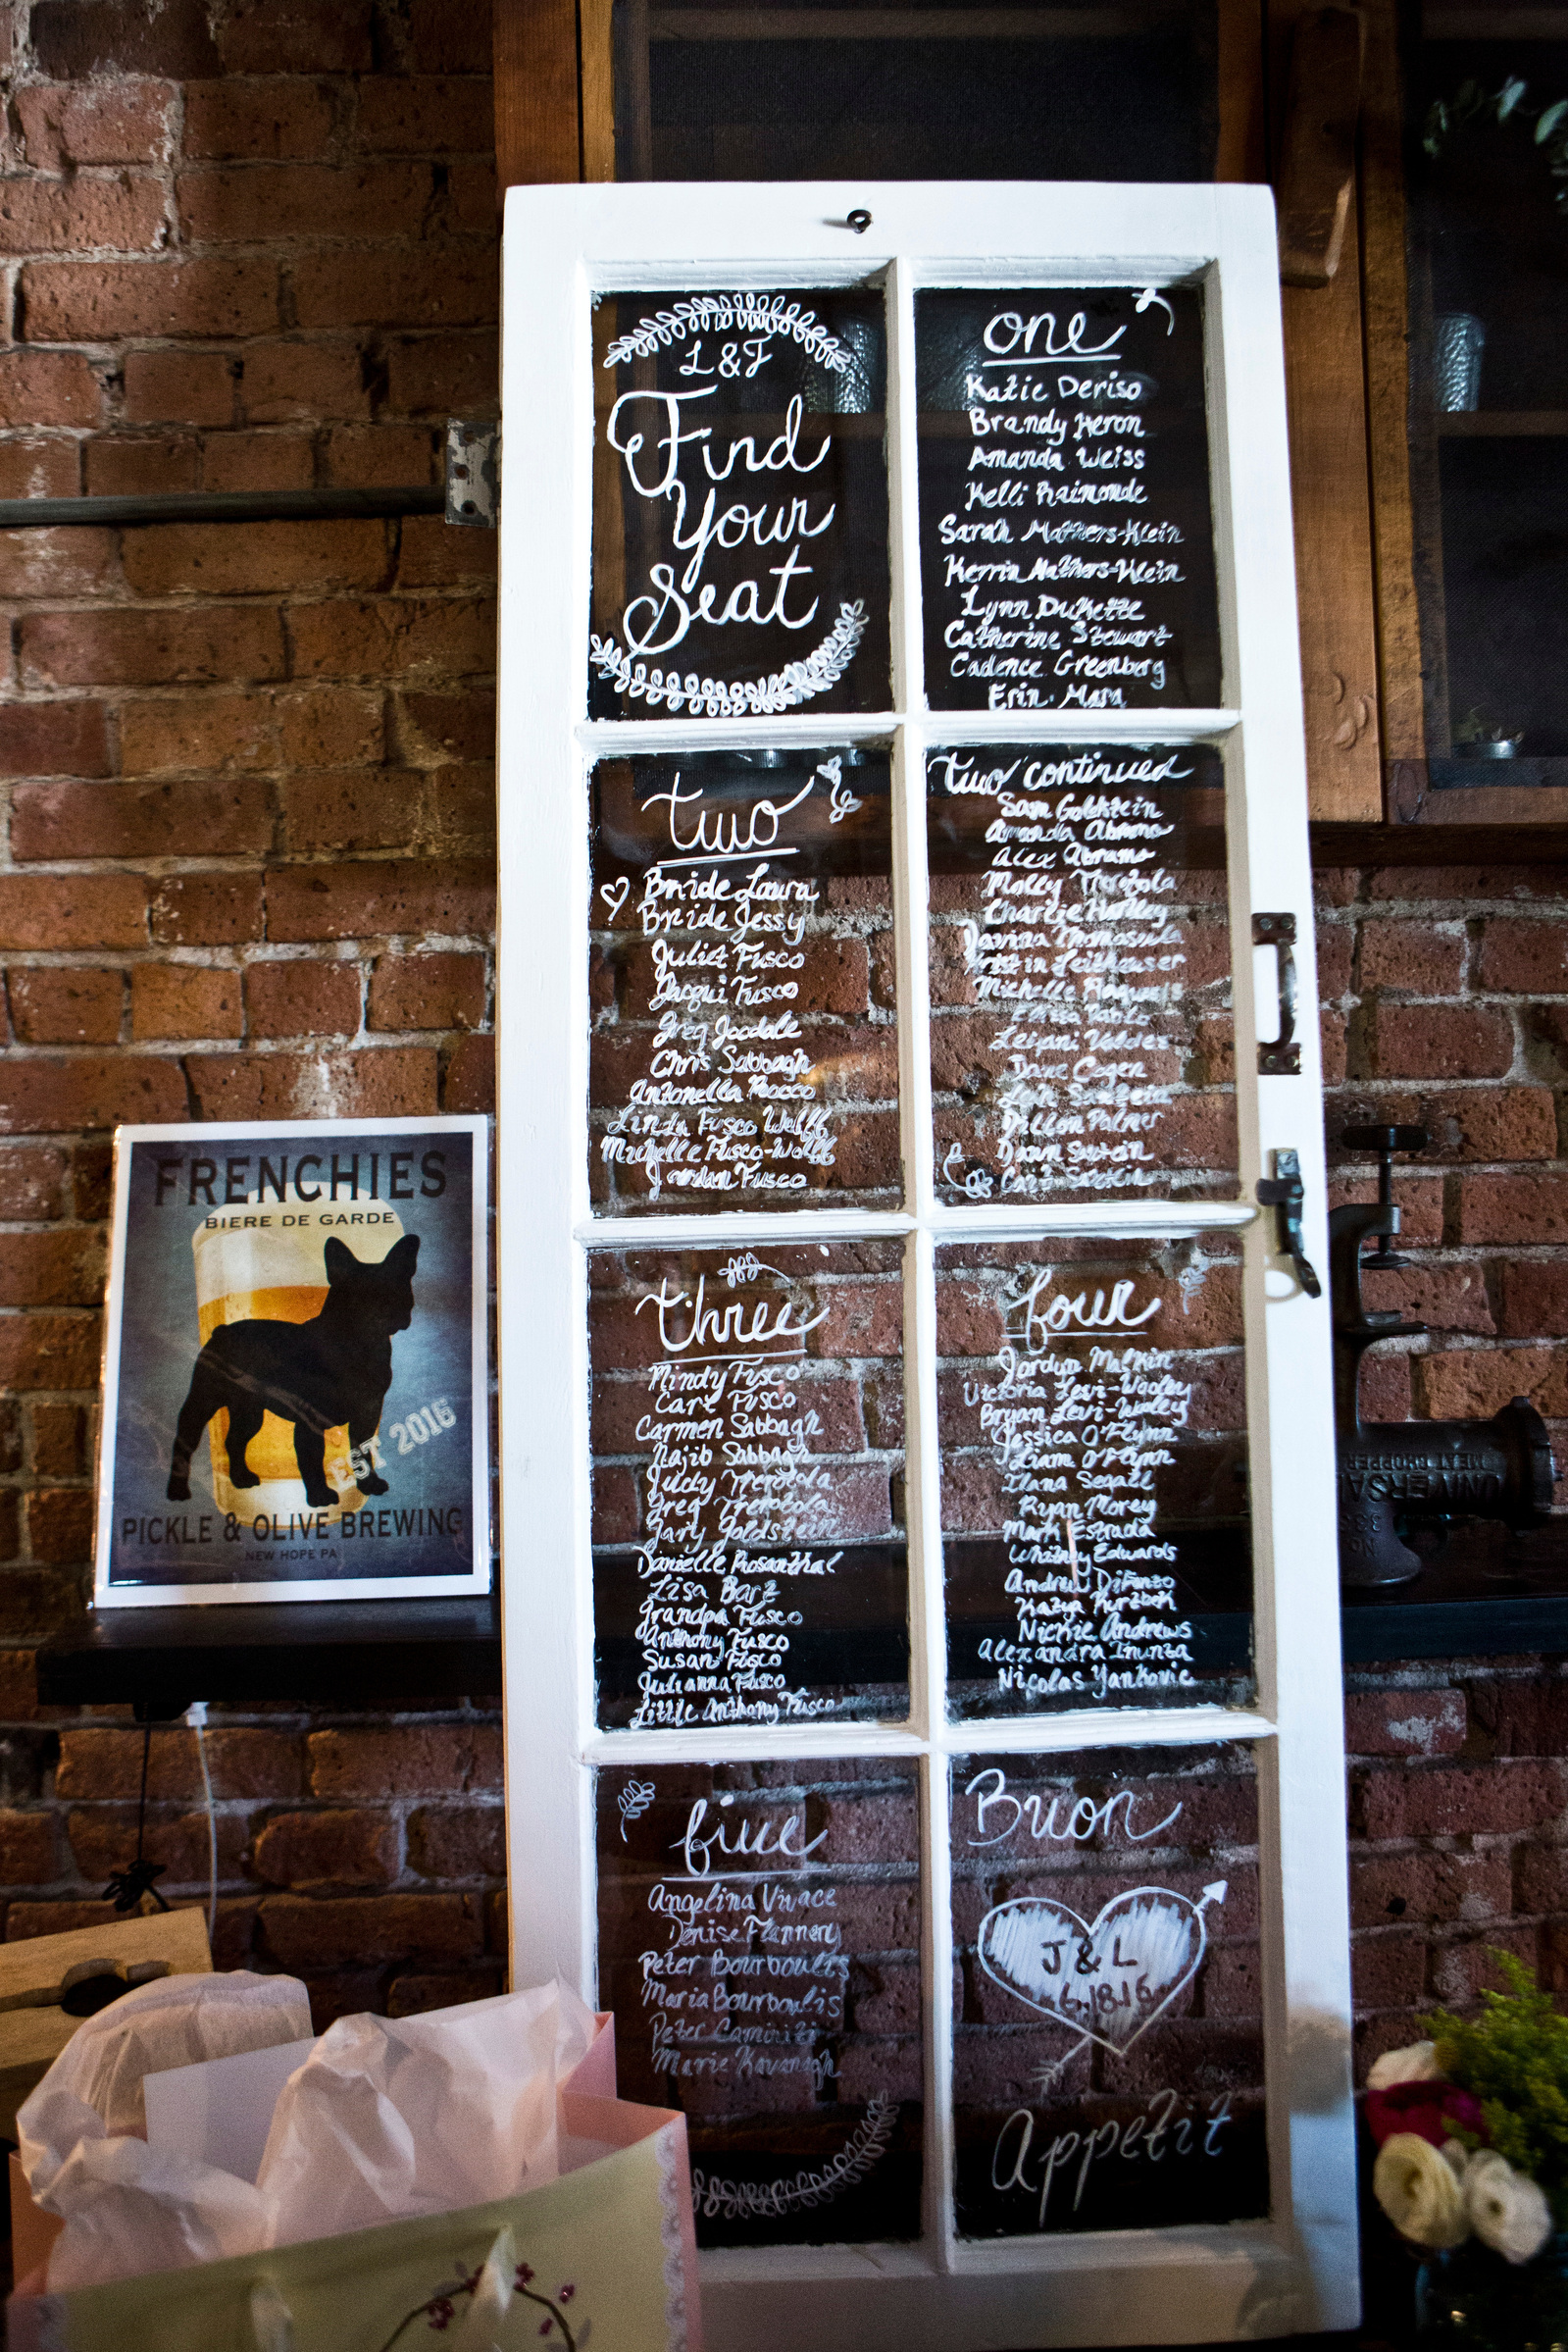 L & J
Find
Your
Seat
one
Katie Deriso
Brandy Heron
Amanda Weiss
Kelli Raimonde
Sarah Mathers-Klein
Kerrin Mathers-Klein
Lynn DuKette
Catherine Stewart
Cadence Greenberg
Erin Mara
two
Bride Laura
Bride Jessy
Juliet Fusco
Jacqui Fusco
Greg Goodale
Chris Sabbagh
Antonella Rocco
Linda Fusco Wolff
Michelle Fusco-Wolff
Jordan Fusco
two continued
Sam Goldstein
Amanda Abramo
Alex Abramo
Molly Trerotola
Charlie Hartley
Kristin Leithauser
Michelle
Leipni Valdez
Dane Cogen
Dillon Palmer
three
Mindy Fusco
Carl Fusco
Carmen Sabbagh
Najib Sabbagh
Judy Trerotola
Greg Trerotola
Gary Goldstein
Danielle Rosanthal
Lisa Barz
Grandpa Fusco
Anthony Fusco
Susan Fusco
Julianna Fusco
Little Anthony Fusco
four
Jordyn Malkin
Victoria Levi-Wooley
Bryan Levi-Wooley
Jessica O'Flynn
Liam O'Flynn
Ilana Segall
Ryan Morey
Mark Estrada
Whitney Edwards
Andrew DiFonzo
Katya
Nickie Andrews
Alexandra Irunza
Nicolas Yankovic
five
Angelina Vivace
Denise Flannery
Peter Bourboulis
Maria Bourboulis
Peter Camiriti
Marie Kavanagh
Buon
J & L
6.18.16
Appetit
FRENCHIES
BIERE DE GARDE
EST 2016
PICKLE & OLIVE BREWING
NEW HOPE PA
UNIVERSAL
MEAT CHOPPER